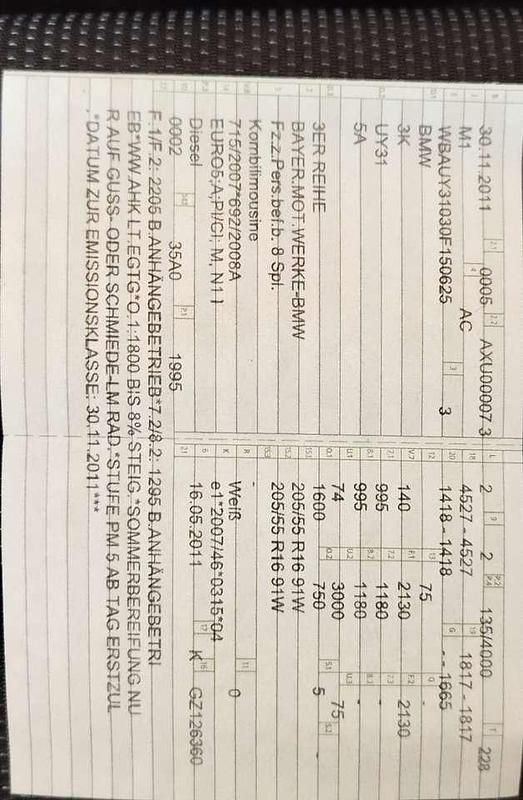 30.11.2011 0005 AXU00007 3
M1 AC
WBAUY31030F150625 3
BMW
3K
UY31
5A
3ER REIHE
BAYER.MOT.WERKE-BMW
Fz.z.Pers.bef.b. 8 Spl.
Kombilimousine
715/2007*692/2008A
EURO5;A;PI/CI; M, N1 I
Diesel
0002 35A0 1995
2 2 135/4000 228
4527 - 4527 1817 - 1817
1418 - 1418 -- 1665
75 -
140 2130 2130
995 1180 -
995 1180 -
74 3000 75
1600 750 5 -
205/55 R16 91W
205/55 R16 91W
-
Weiß 0
e1*2007/46*0315*04
16.05.2011 K GZ126360
F.1/F.2: 2205 B.ANHÄNGEBETRIEB*7.2/8.2: 1295 B.ANHÄNGEBETRI
EB*WW.AHK LT.EGTG*O.1:1800 BIS 8% STEIG.*SOMMERBEREIFUNG NU
R AUF GUSS- ODER SCHMIEDE-LM RAD.*STUFE PM 5 AB TAG ERSTZUL
.*DATUM ZUR EMISSIONSKLASSE: 30.11.2011***